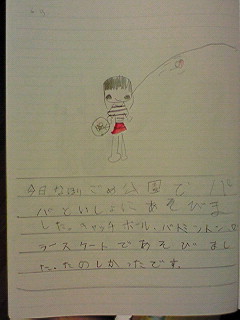 今日なかよしこめ公園で パ
パといっしょにあそびま
した。キャッチボール、バドミントン、ロ
ラースケートであそびまし
た。たのしかったです。